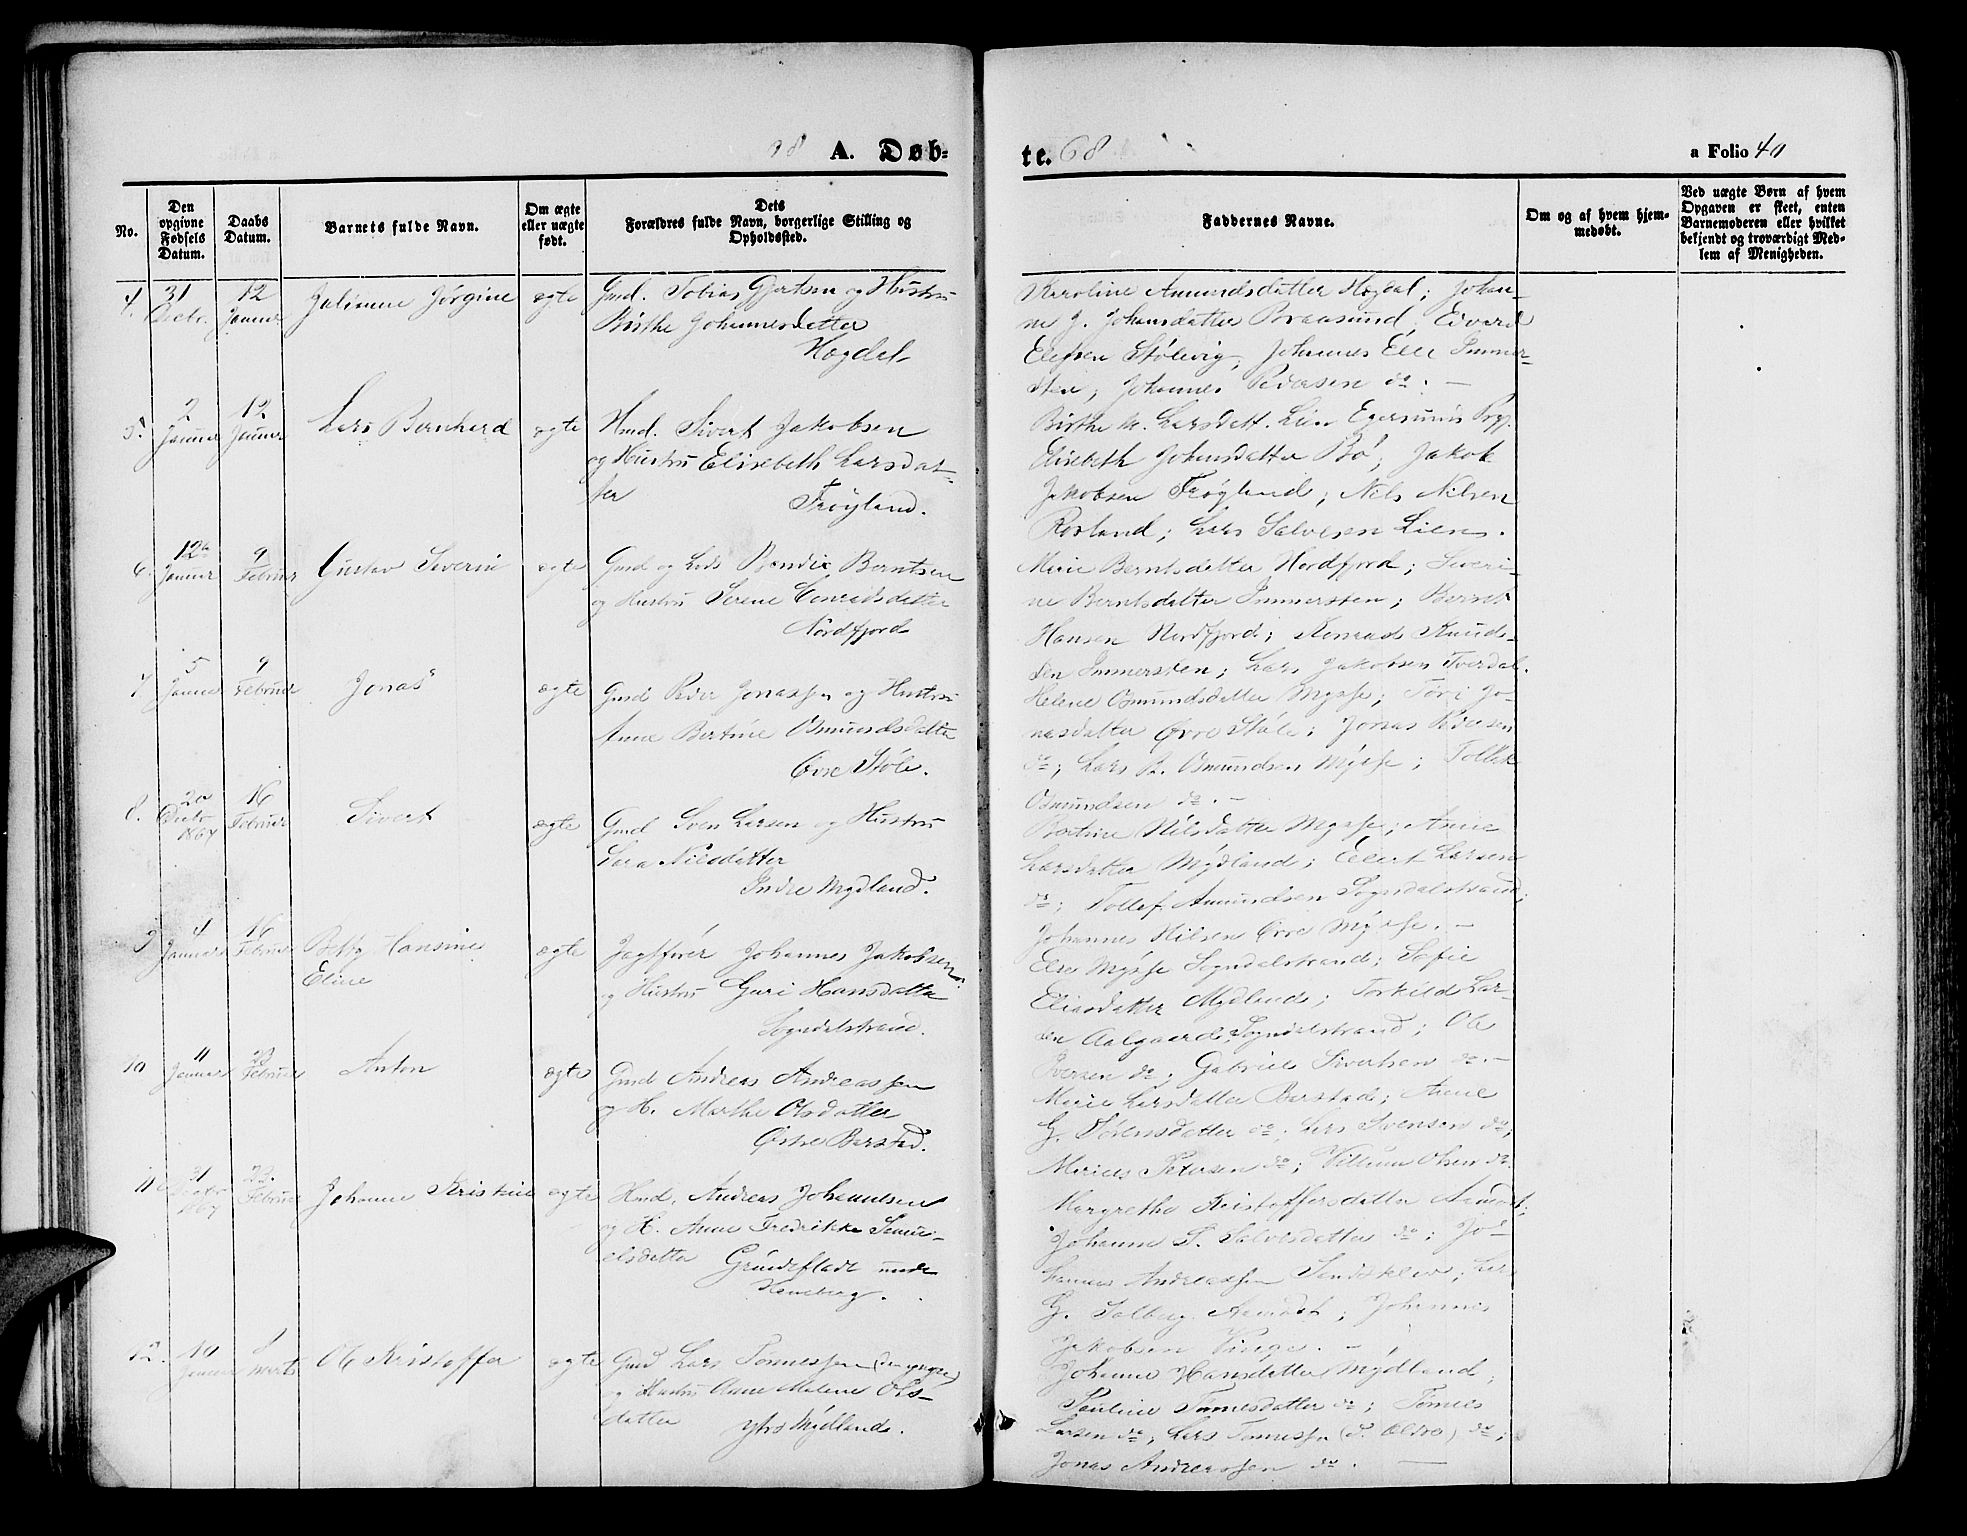 A. Døb-
te. 68
a Folio 40
No.
Den opgivne Fødsels Datum.
Daabs Datum.
Barnets fulde Navn.
Om ægte eller uægte født.
Dets Forældres fulde Navn, borgerlige Stilling og Opholdssted.
Faddernes Navne.
Om og af hvem hjemmedøbt.
Ved uægte Børn af hvem
Opgaven er skeet, enten
Barnemoderen eller hvilket
bekjendt og troværdigt Med-
lem af Menigheden.
4. 31 Decbr. 12 Januar Jørgine ægte Gmd. Tobias Gjertsen og Hustru
Birthe Johannesdatter
Høgdal
Karoline Amundsdatter Høgdal; Johan-
ne J. Johansdatter Braasund; Edvard
Elefsen Stølevig; Johannes Immer-
sten; Johannes Pedersen do. —
5. 2 Januar 12 Januar Lars Bernhard ægte Hmd. Sivert Jakobsen
og Hustru Elisebeth Larsdat-
ter
Frøyland.
Birthe M. Larsdatt. Lien Egersunds
Elisebeth Johansdatter Bø; Jakob
Jakobsen Frøyland; Nils Nilsen
Rosland; Lars Salvesen Lien.
6. 12 Januar 9 Februar Gustav Severin ægte Gmd og Lods Bendix Berntsen
og Hustru Serene Conradsdatter
Nordfjord
Marie Berntsdatter Nordfjord; Severi-
ne Berntsdatter Immersten; Bernt
Hansen Nordfjord; Konrad Knud-
sen Immersten; Lars Jakobsen Tverdal.
7 5 Januar 9 Februar Jonas ægte Gmd Peder Jonassen og Hustru
Anne Bertine Osmundsdatter
Øvre Støle.
Helene Osmundsdatter Mysse; Tori Jo-
nasdatter Øvre Støle; Jonas Pedersen
do; Lars B. Osmundsen Mysse; Tollek
Osmundsen do. —
8. 20 Decbr 1867 16 Februar Sivert ægte Gmd Sven Larsen og Hustru
Sara Nilsdatter
Indre Mydland.
Bertine Nilsdatter Mysse; Anne
Larsdatter Mydland; Elert Larsen
do; Tollef Amundsen Sogndalstrand;
Johannes Nilsen Øvre Mysse. —
9 4 Januar 16 Februar Hansine
Eline
ægte Johannes Jakobsen
og Hustru Guri Hansdatter
Sogndalstrand.
Else Mysse Sogndalstrand; Sofie
Eliasdatter Mydland; Torkild Lar-
sen Aalgaard Sogndalstrand; Ole
Iversen do; Gabriel Sivertsen do. —
10 11 Januar 23 Februar Anton ægte Gmd Andreas Andreassen
og H. Marthe Olsdatter
Østre Barstad.
Marie Larsdatter Barstad; Anne
G. Sørensdatter do; Lars Svensen do;
Marius Petersen do; Villum Olsen do.
11 31 Decbr 1867 23 Februar Johanne Kristine ægte Hmd. Andreas Johannesen
og H. Anne Fredrikke Samu-
elsdatter
under
Margrethe Kristoffersdatter Aamodt;
Johanne S. Salvesdatter do; Jo-
hannes Andreassen Sandsklev; Lars
G. Solberg Aamodt; Johannes
Jakobsen
12. 10 Januar 1 Marts Ole Kristoffer ægte Gmd Lars Tønnessen (den yngre)
og Hustru Anne Malene Ols-
datter
Ytre Mydland.
Johanne Hansdatter Mydland;
Pauline Tønnesdatter do; Tønnes
Larsen do; Lars Tønnessen (d. Ældre) do;
Jonas Andreassen do. —